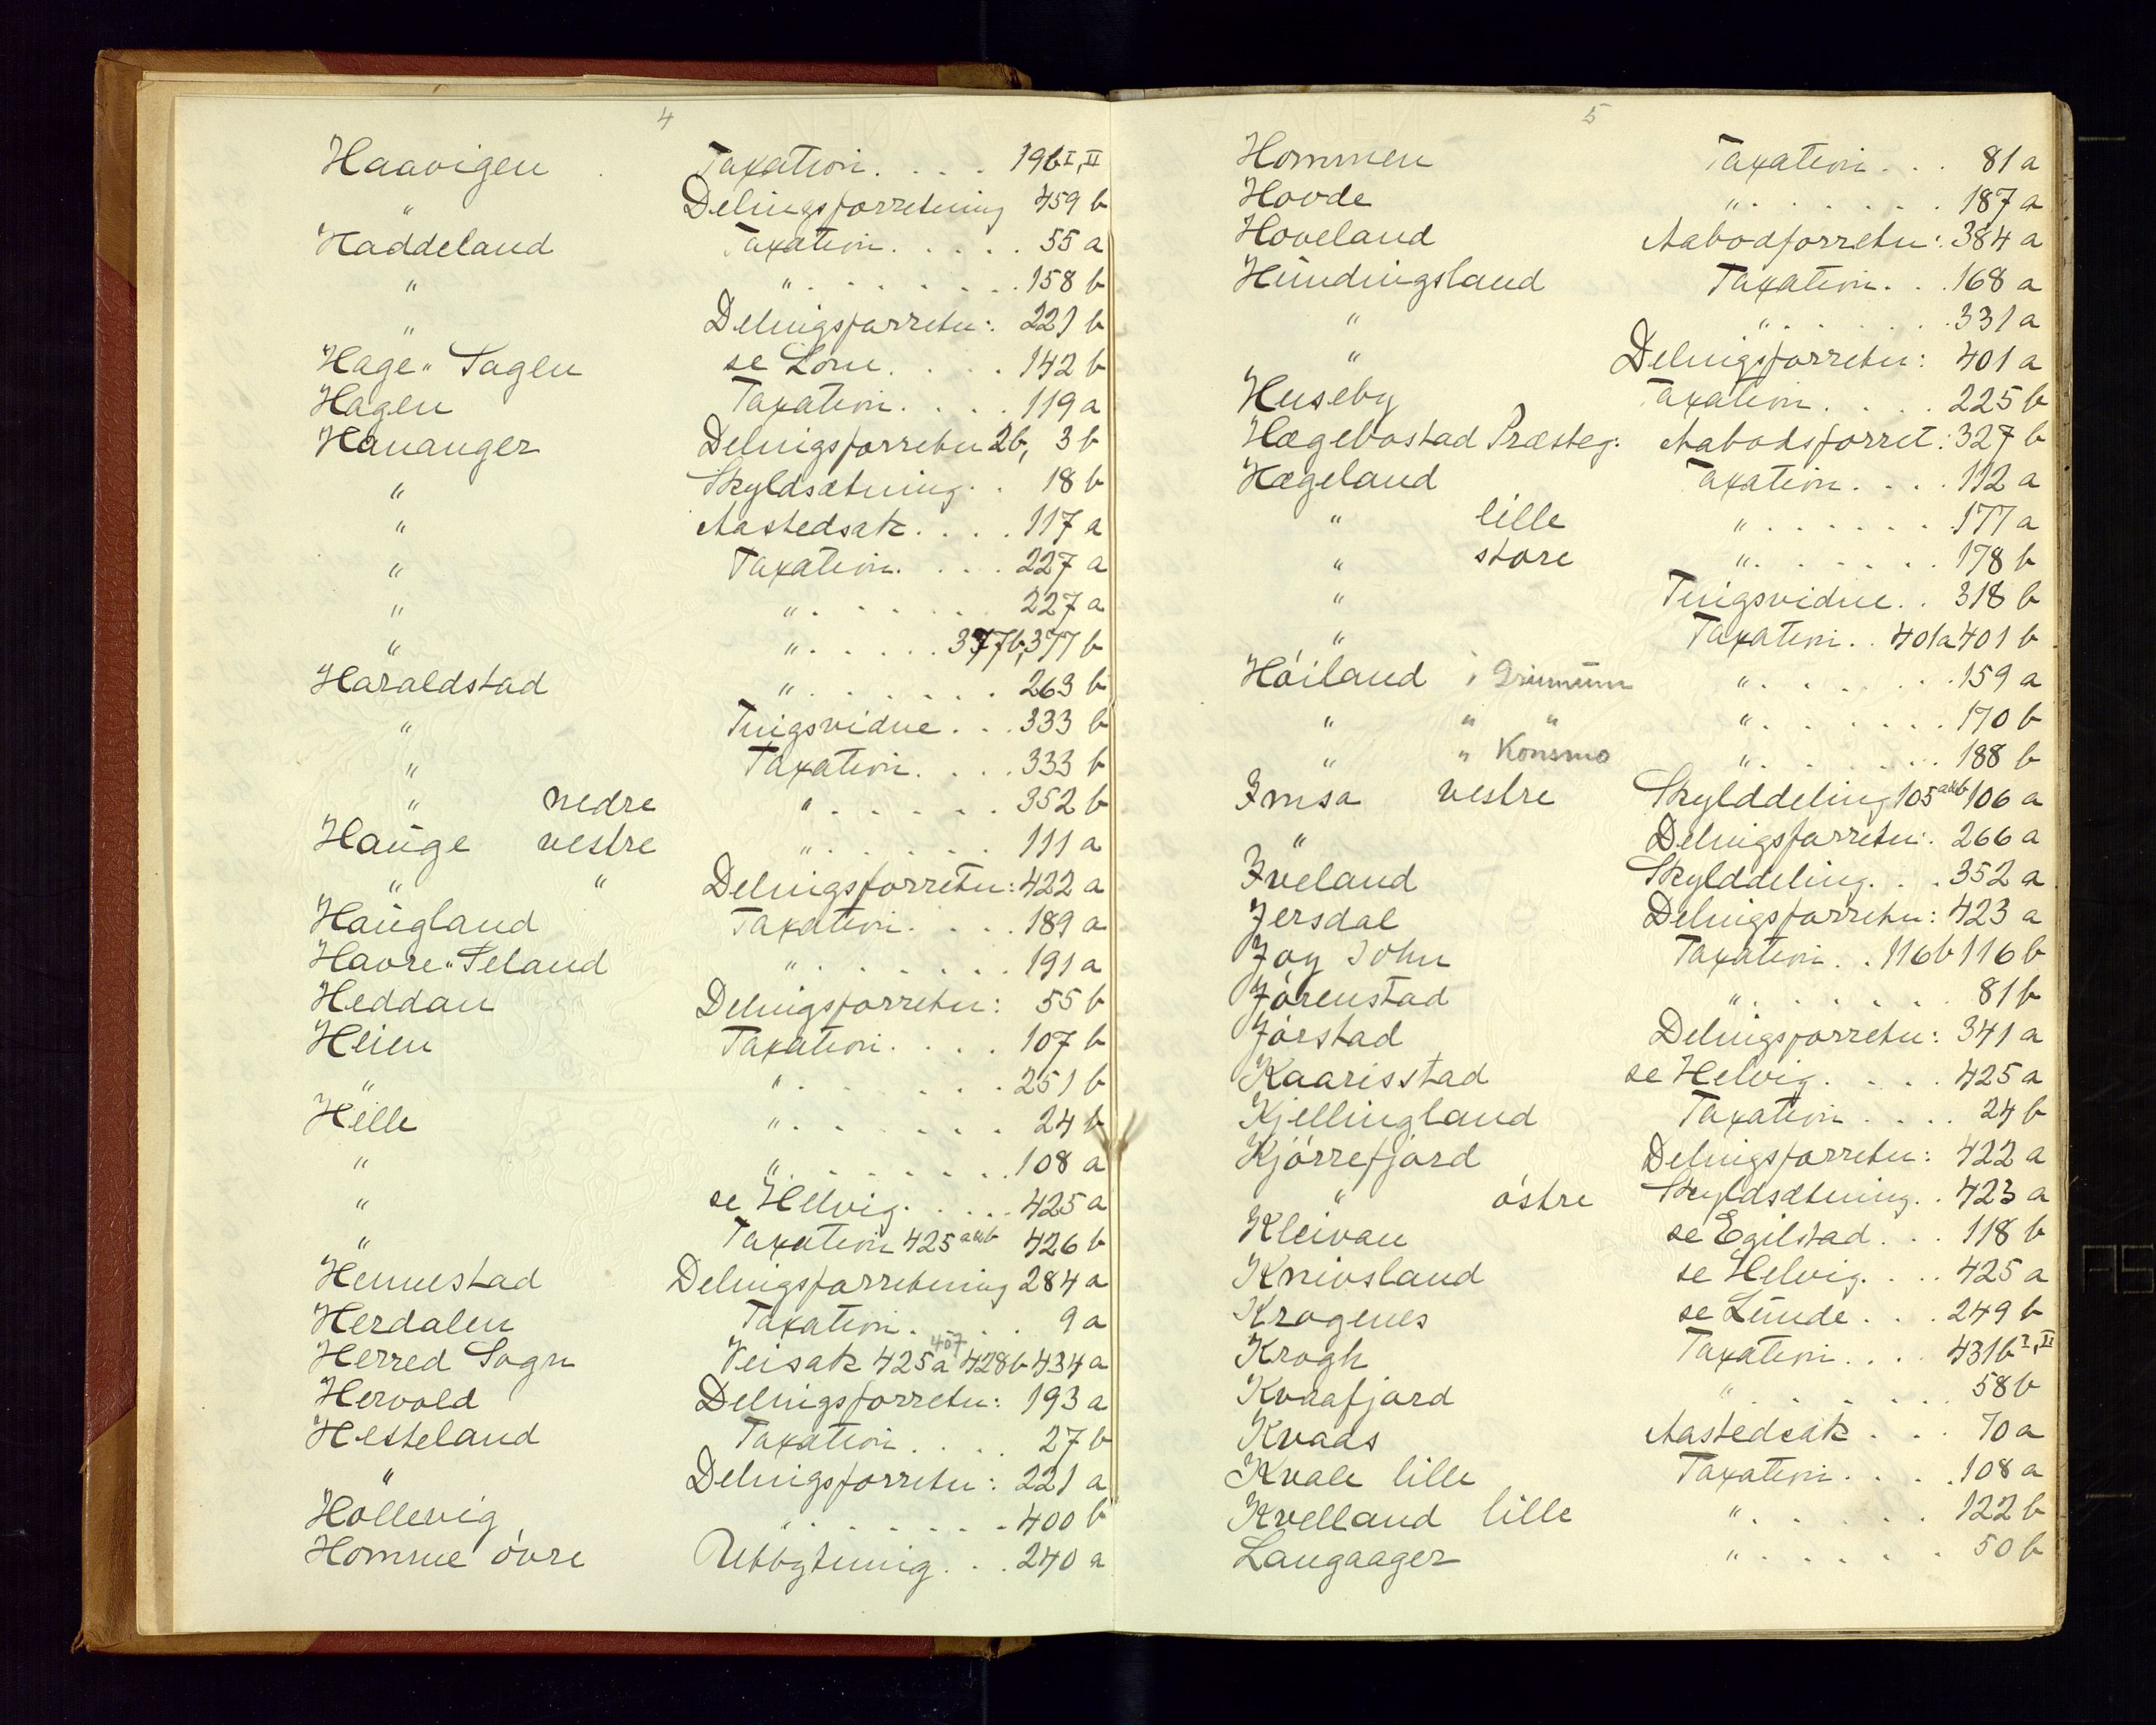 4
Haavigen Taxation. . . . 19b I, II
" Delingsforretning 459 b
Haddeland Taxation. . . . . 55 a
" " . . . . . . . 158 b
" Delingsforretn: 221 b
"Hage" Sagen se Lom. . . . 142 b
Hagen Taxation. . . . 119 a
Hananger Delingsforretn 2b, 3 b
" Skyldsætning. . 18 b
" Aastedsak. . . . 117 a
" Taxation. . . . 227 a
" " . . . . . . 227 a
" " . . . . . 377b, 377 b
Haraldstad " . . . . . . . 263 b
" Tingsvidne. . . 333 b
" Taxation. . . . 333 b
" nedre " . . . . . . 352 b
Hauge vestre " . . . . . . 111 a
" " Delingsforretn: 422 a
Haugland Taxation. . . . 189 a
Havre-Feland " . . . . . . . 191 a
Heddan Delingsforretn: 55 b
Heien Taxation. . . . 107 b
" " . . . . . . . 251 b
Hille " . . . . . . . 24 b
" " . . . . . . . 108 a
" se Helvig. . . . . 425 a
" Taxation 425 a&b 426 b
Hennestad Delingsforretning 284 a
Herdalen Taxation. . . . 9 a
Herred Sogn Veisak 425a 457 428b 434 a
Hervold Delingsforretn: 193 a
Hesteland Taxation. . . . 27 b
" Delingsforretn: 221 a
Hollevig " . . . . . . . 400 b
Homme óvre Udbygning. . . 240 a
5
Hommen Taxation. . . 81 a
Hovde " . . . . . . . 187 a
Hoveland Aabodforretn: 384 a
Hundingsland Taxation. . . 168 a
" " . . . . . . 331 a
" Delingsforretn: 401 a
Huseby Taxation. . . . 225 b
Hægebostad Præsteg: Aabodsforret: 327 b
Hægeland Taxation. . . . 112 a
" lille " . . . . . . . 177 a
" store " . . . . . . . 178 b
" Tingsvidne. . 318 b
" Taxation. . 401a 401 b
Hóiland i Grimum " . . . . . . 159 a
" " " " . . . . . . 170 b
" " Konsmo " . . . . . . 188 b
Imsa vestre Skylddeling 105 a&b 106 a
" Delingsforretn: 266 a
Iveland Skylddeling. . . 352 a
Jersdal Delingsforretn: 423 a
Joy John Taxation. . 116b 116 b
Jórenstad " . . . . . . 81 b
Jórstad Delingsforretn: 341 a
Kaarisstad se Helvig. . . . 425 a
Kjellingland Taxation. . . . 24 b
Kjórrefjord Delingsforretn: 422 a
" óstre Skyldsætning. . 423 a
Kleivan se Egilstad. . . 118 b
Knivsland se Helvig. . . . 425 a
Krogenes se Lunde. . . 249 b
Krogh Taxation. . . . 431b I, II
Kvaafjord " . . . . . . 58 b
Kvaas Aastedsak. . . 70 a
Kvale lille Taxation. . . . 108 a
Kvelland lille " . . . . . . 122 b
Langaager " . . . . . . 50 b